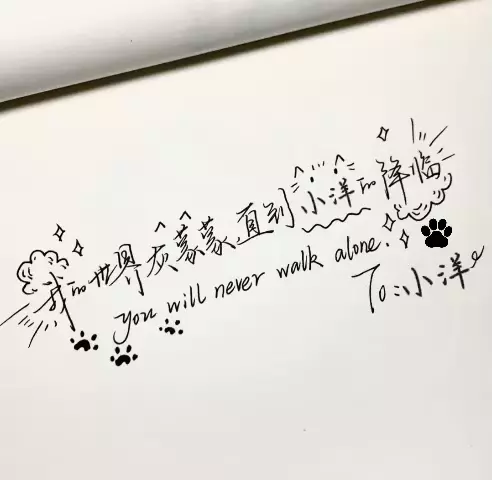 我的世界灰蒙蒙，直到小洋的降临
you will never walk alone.
To:小洋